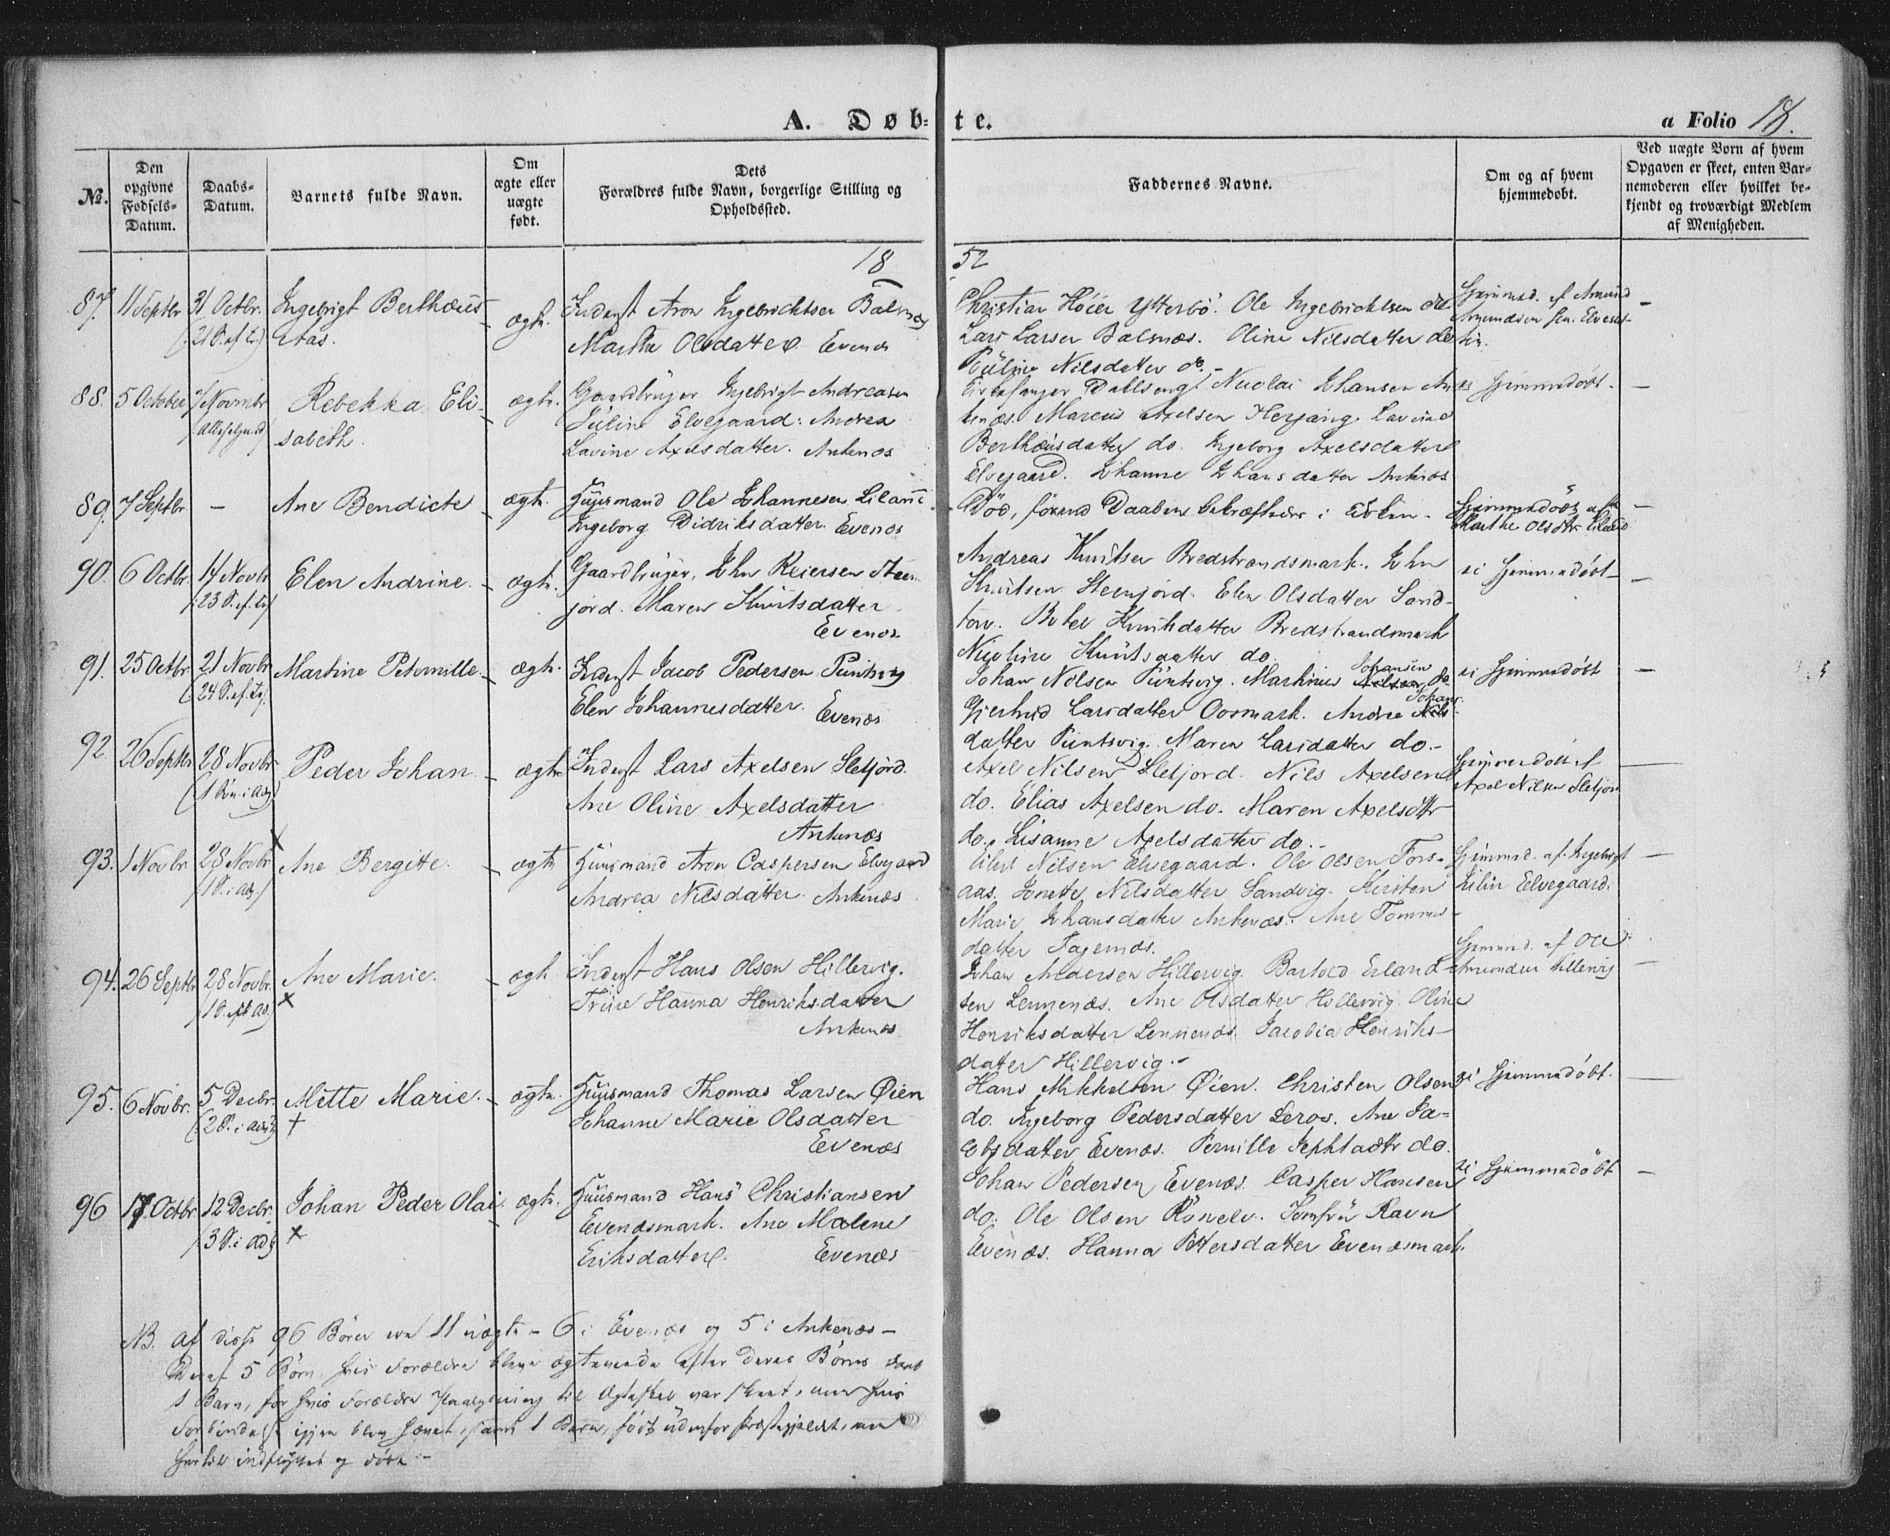 A. Døbte.
a Folio 18.
№.
Den opgivne Fødsels-Datum.
Daabs-Datum.
Barnets fulde Navn.
Om ægte eller uægte født.
Dets Forældres fulde Navn, borgerlige Stilling og Opholdssted.
Faddernes Navne.
Om og af hvem hjemmedøbt.
Ved uægte Børn af hvem Opgaven er skeet, enten Barnemoderen eller hvilket bekjendt og troværdigt Medlem af Menigheden.
18 52
87. 11 Septbr 31 Octbr. Ingebrigt Berthæus ægte. Inderst Aron Ingebrichtsen Balsnæs
(21 S. ef. Tr.) Aas. Marthe Olsdatter. Evenæs
Christian Höier Ytterbö. Ole Ingebrichtsen
Lars Larsen Balsnæs. Oline Nilsdatter do
Nilsdatter do.
Hjemmed. af Amund
Amundsen
88. 5 October 7 Novmbr Rebekka Eli- ægte. Gaardbruger Ingebrigt Andreasen
sabeth. Elvegaard: Andrea
Lavine Axelsdatter. Ankenæs
Nicolai Johansen An-
kenæs. Marcus Axelsen Herjang. Lavine
Berthæusdatter do. Ingeborg Axelsdatter
Elvegaard. Johanne Johansdatter Ankenæs
ei Hjemmedøbt. —
89. 7 Septbr — Ane Bendicte ægte. Huusmand Ole Johannesen
Ingeborg Didriksdatter. Evenæs
Död, förend Daaben bekræftedes i Kirken.
Hjemmedöbt af
Marthe Olsdtr
90. 6 Octbr 14 Novbr Elen Andrine. ægte. Gaardbruger, John Reiersen Steen-
(23 S. ef. Tr) jord. Maren Knutsdatter
Evenæs
Andreas Knutsen Bredstrandsmark. John
Knutsen Steenjord. Elen Olsdatter Sand-
torv. Knutsdatter Bredstrandsmark
Nicoline Knutsdatter do.
ei Hjemmedøbt —
91. 25 Octbr 21 Novbr Martine Peternille. ægte. Inderst Jacob Pedersen Puntsvig
(24 S. ef. Tr.) Elen Johannesdatter. Evenæs
Johan Nilsen Puntsvig. Martinus Johansen do
Gjertrud Larsdatter Oosmark. Andrea Johans-
datter Puntsvig. Maren Larsdatter do.
ei Hjemmedøbt —
92. 26 Septbr 28 Novbr Peder Johan ægte Inderst Lars Axelsen Sletjord.
Ane Oline Axelsdatter
Ankenæs
Axel Nilsen Sletjord. Nils Axelsen
do. Elias Axelsen do. Maren Axelsdtr
do. Lisanne Axelsdatter do.
Hjemmedøbt af
Axel Nilsen Sletjord
93. 1 Novbr 28 Novbr Ane Bergitte. ægte Huusmand Aron Caspersen Elvegaard
Andrea Nilsdatter. Ankenæs
Nilsen Elvegaard. Ole Olsen Fors-
aas. Jonette Nilsdatter Sandvig. Kirsten
Marie Johansdatter Ankenæs. Ane Tommes-
datter Fagernæs.
Hjemmed. af Ingebrigt
Elvegaard.
94. 26 Septbr 28 Novbr. Ane Marie. ægte Inderst Hans Olsen Hillervig.
× Trine Hanna Henriksdatter
Ankenæs
Johan Andersen Hillervig. Bartold Erland-
sen Lennenæs. Ane Olsdatter Hillervig. Oline
Henriksdatter Lennenæs. Jacobia Henriks-
datter Hillervig.
Hjemmed. af Ole
Amundsen Hillervig
95. 6 Novbr. 5 Decbr. Mette Marie. ægte. Huusmand Thomas Larsen Øien
(2 S. i Adv) + Johanne Marie Olsdatter
Evenæs
Hans Mikkelsen Øien. Christen Olsen
do. Ingeborg Pedersdatter Leros. Ane Ja-
cobsdatter Evenæs. Pernille Jephtadtr do.
ei Hjemmedøbt.
96 17 Octbr 12 Decbr. Johan Peder Olai ægte. Huusmand Hans Christiansen
(3 S. i Adv) × Evenæsmark. Ane Malene
Eriksdatter. Evenæs
Johan Pedersen Evenæs. Casper Hansen
do. Ole Olsen Rönelv. Jomfrü Ravn
Evenæs. Hanna Pettersdatter Evenæsmark.
ei Hjemmedøbt —
NB. af disse 96 Börn ere 11 uægte — 6 i Evenæs og 5 i Ankenæs —
Deraf 5 Börn hvis Forældre bleve ægteviede efter deres Börns Daab
1 Barn, for hvis Forældre til Ægteskab var skeet, men hvis
Forbindelse igjen blev hævet, samt 1 Barn, födt udenfor Præstegjeldet, men
hertil indflyttet og döbt. —